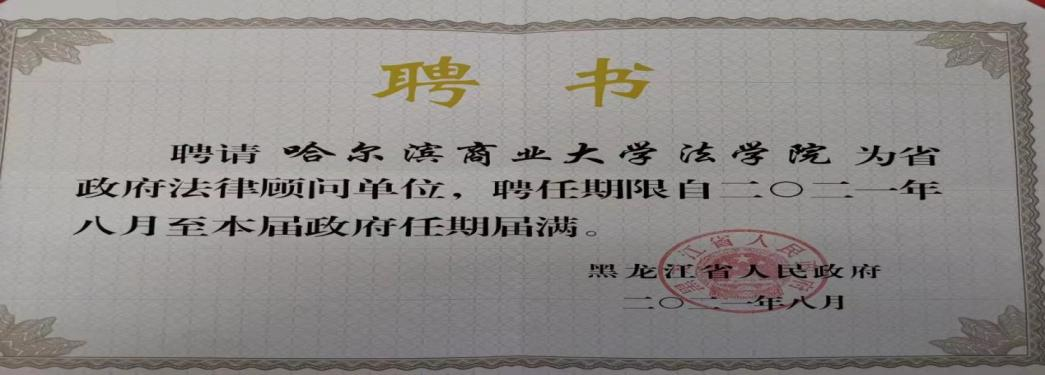 聘书
聘请哈尔滨商业大学法学院为省
政府法律顾问单位，聘任期限自二〇二一年
八月至本届政府任期届满。
黑龙江省人民政府
二〇二一年八月
黑龙江省人民政府